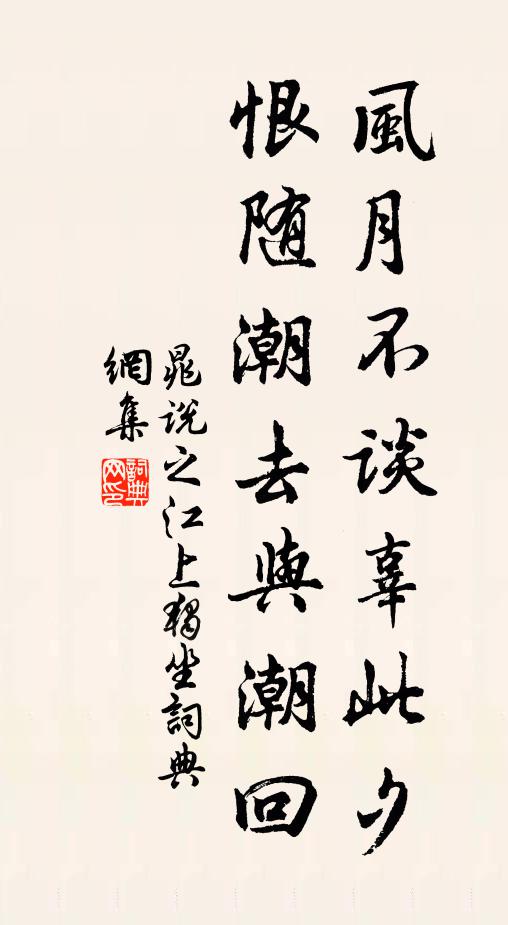 風月不談辜此夕
恨随潮去與潮回
晁說之江上獨坐詞典
網集
詞典網印